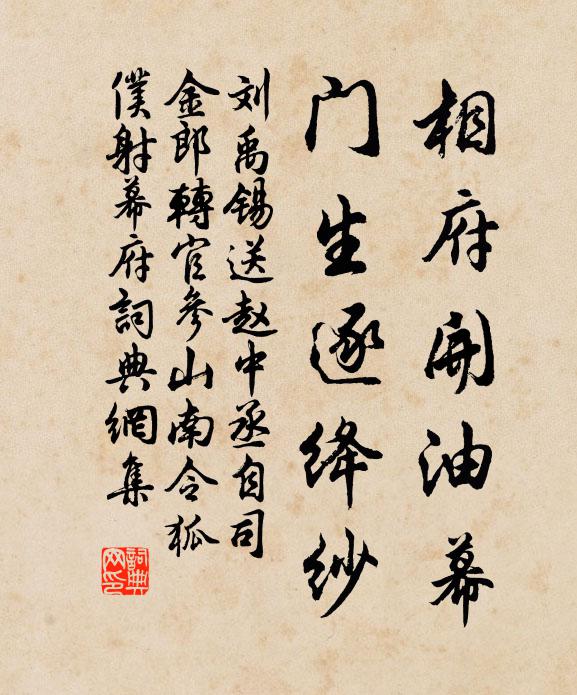 相府开油幕
门生逐绛纱
刘禹锡送赵中丞自司
金郎轉官参山南令狐
僕射幕府詞典網集
詞典网印